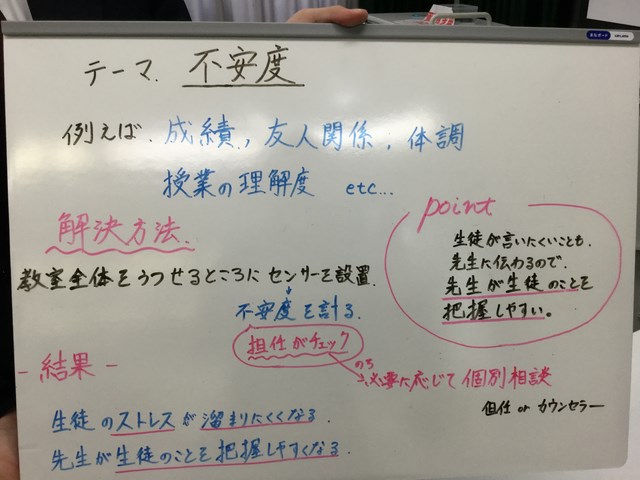 テーマ. 不安度
例えば. 成績, 友人関係, 体調
授業の理解度 etc...
解決方法.
教室全体をうつせるところに センサーを設置.
不安度を計る.
担任がチェック
のち
必要に応じて 個別相談
担任 or カウンセラー
point
生徒が言いにくいことも.
先生に伝わるので.
先生が生徒のことを
把握しやすい。
- 結果 -
生徒のストレスが溜まりにくくなる.
先生が生徒のことを把握しやすくなる.